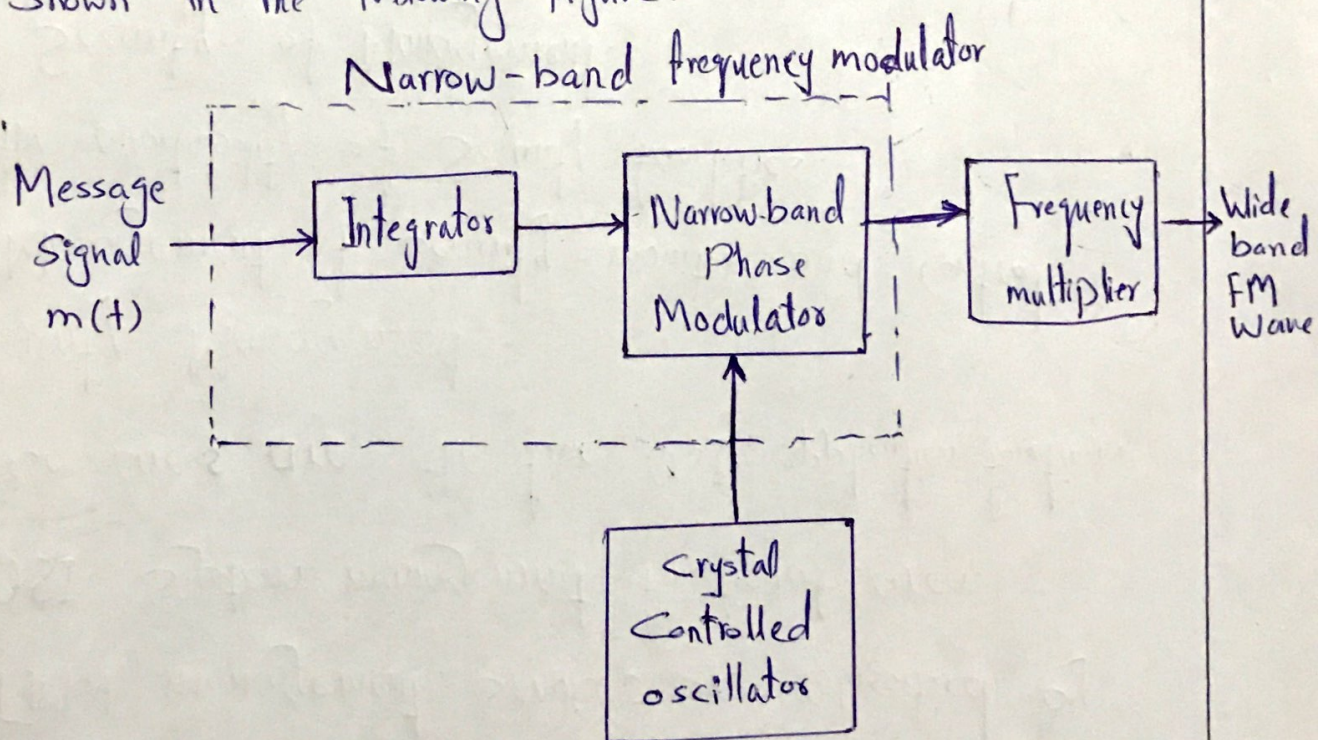 Shown in the following figure
Narrow-band frequency modulator
Message
Signal
m(t)
Integrator
Narrow-band
Phase
Modulator
Frequency
multiplier
Wide
band
FM
Wave
Crystal
Controlled
oscillator